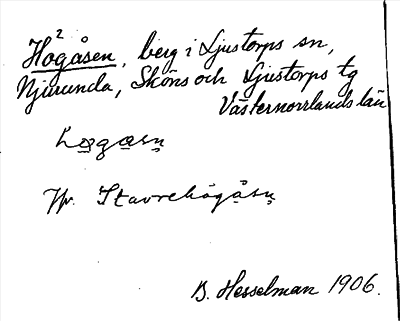 Hogåsen², berg i Ljustorps sn,
Njurunda, Sköns och Ljustorps tg
Västernorrlands län
Jfr. Stavrehögåsn
B. Hesselman 1906.